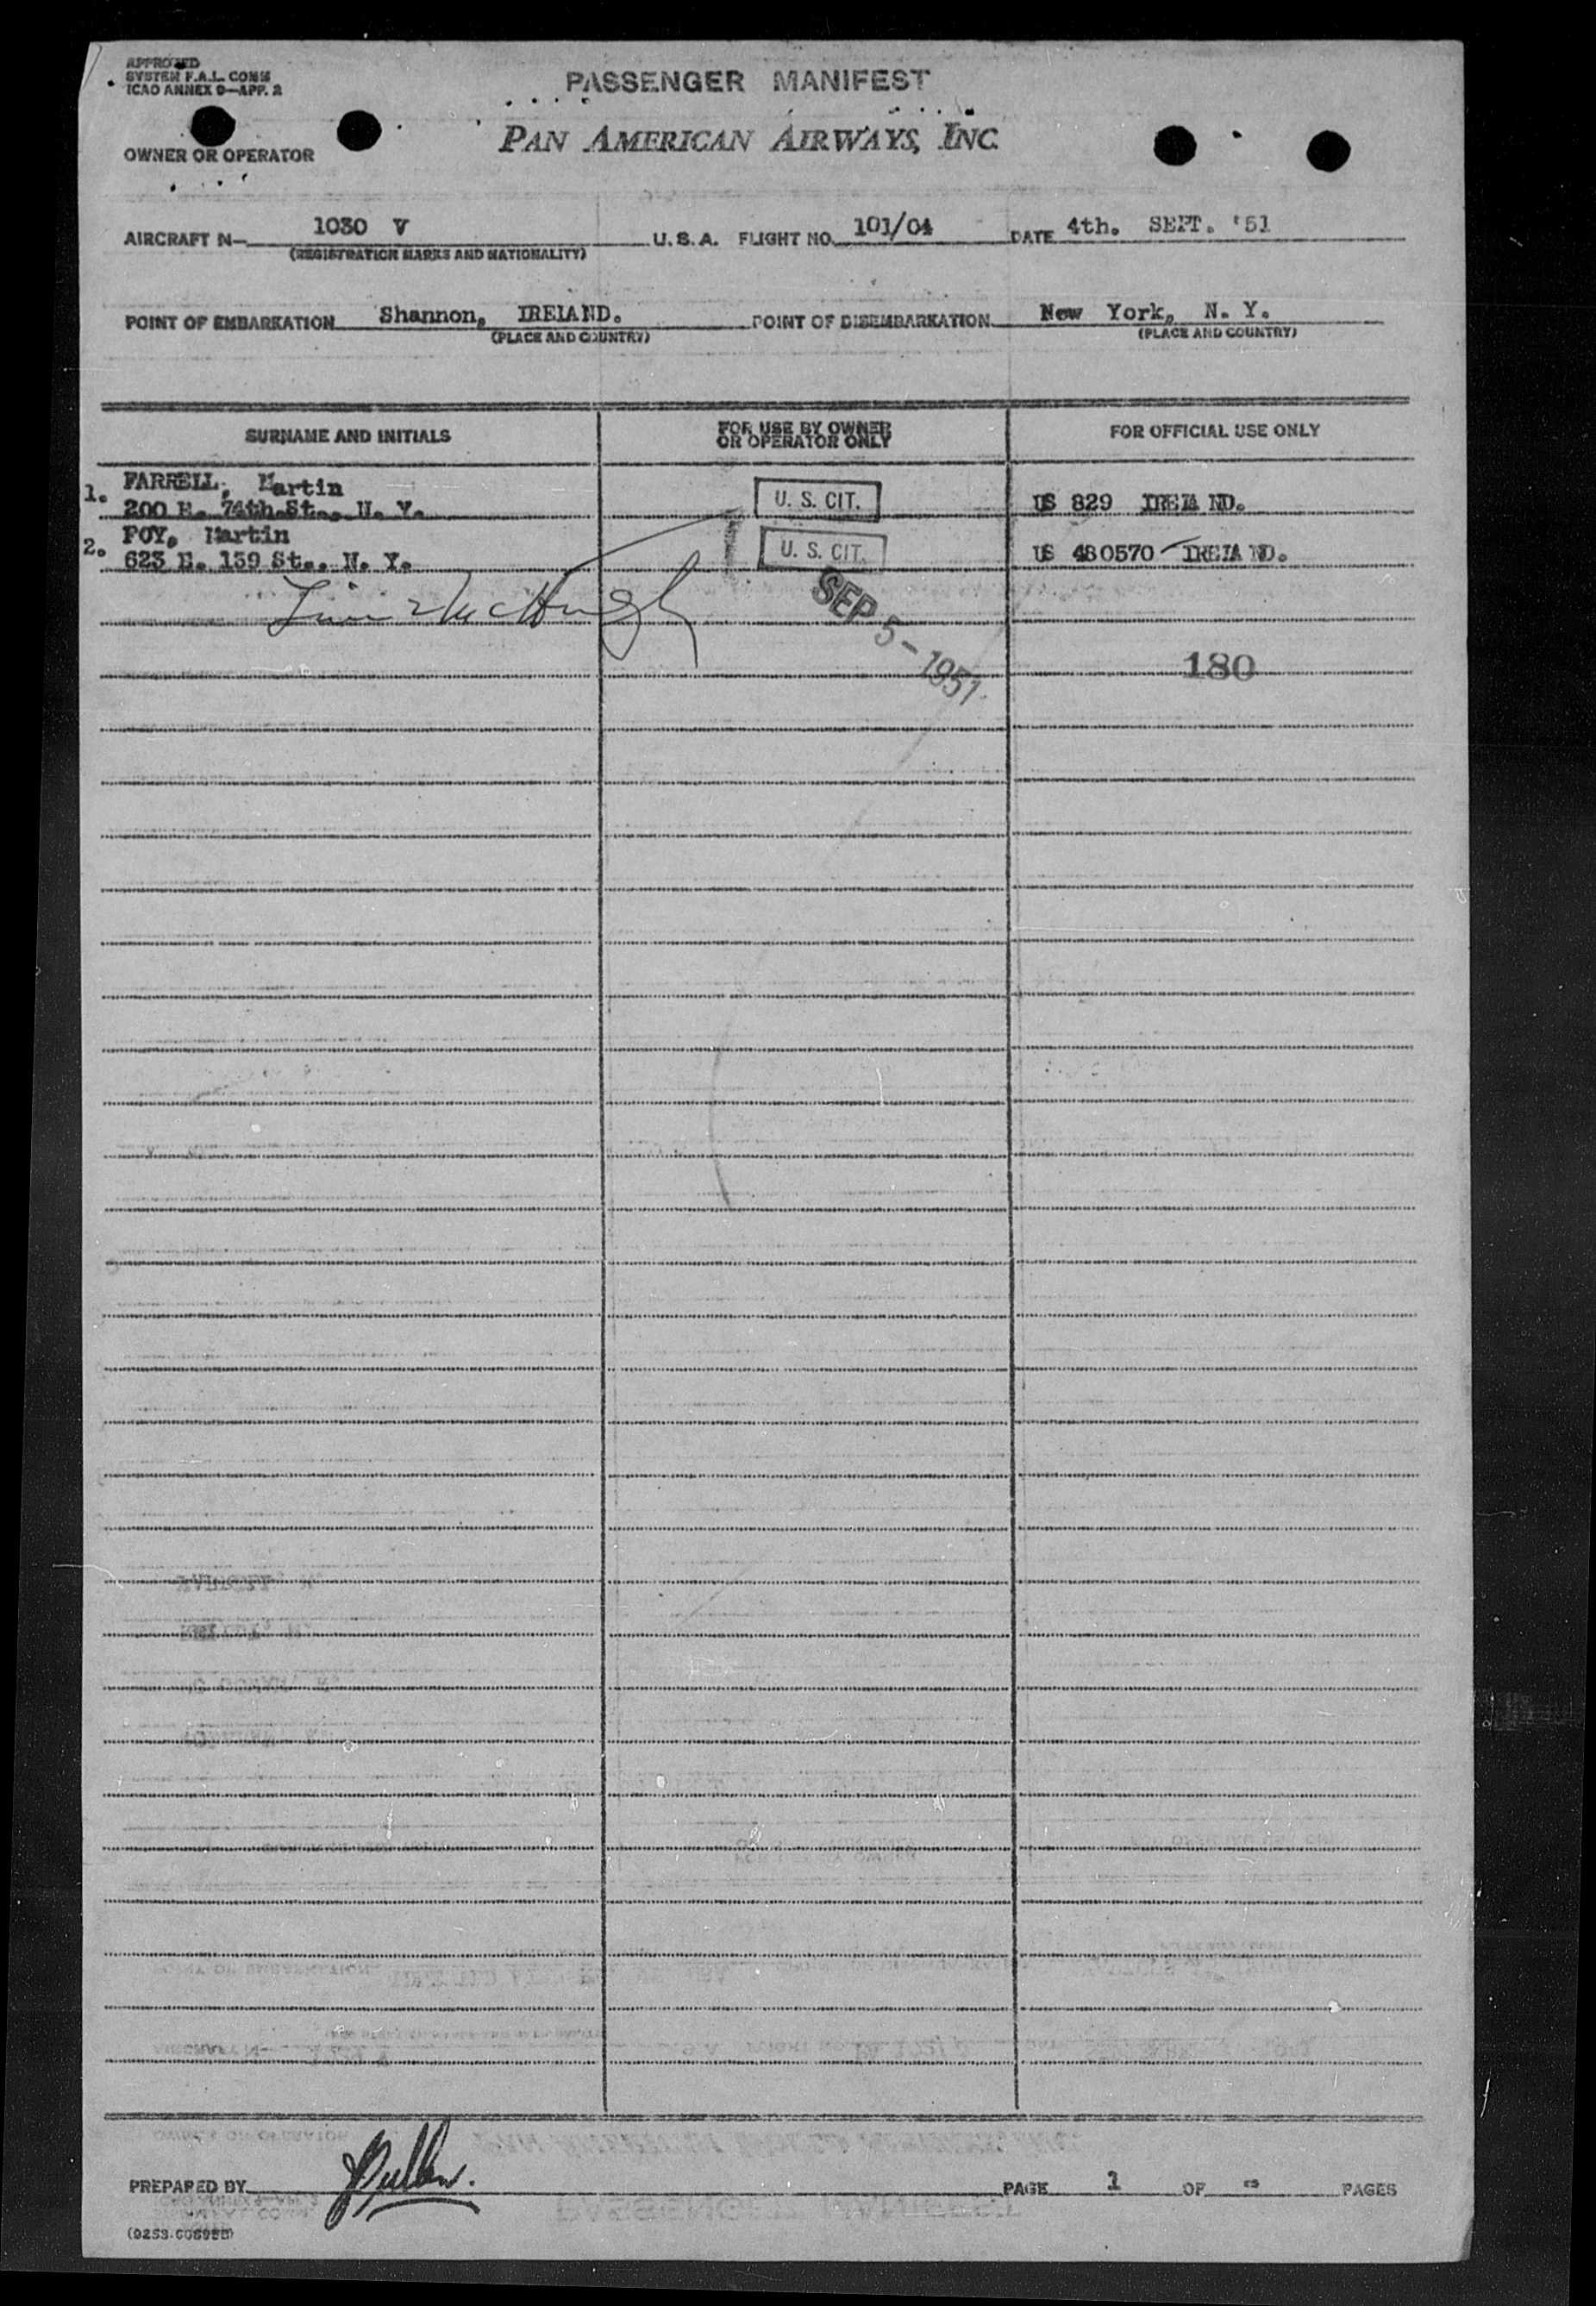 APPROVED
SYSTEM F.A.L. COMM
ICAO ANNEX 9—APP. 2
PASSENGER MANIFEST
PAN AMERICAN AIRWAYS, INC.
OWNER OR OPERATOR
AIRCRAFT N— 1030 V U. S. A. FLIGHT NO. 101/04 DATE 4th. SEPT. '51
(REGISTRATION MARKS AND NATIONALITY)
POINT OF EMBARKATION Shannon, IRELAND. POINT OF DISEMBARKATION New York, N. Y.
(PLACE AND COUNTRY) (PLACE AND COUNTRY)
SURNAME AND INITIALS FOR USE BY OWNER OR OPERATOR ONLY FOR OFFICIAL USE ONLY
1. FARRELL, Martin
200 E. 74th.St., N. Y. U. S. CIT. US 829 IRELAND.
2. FOY, Martin
623 E. 139 St., N. Y. U. S. CIT. US 480570 IRELAND.
McHugh
SEP 5 - 1951
180
PREPARED BY PAGE 1 OF PAGES